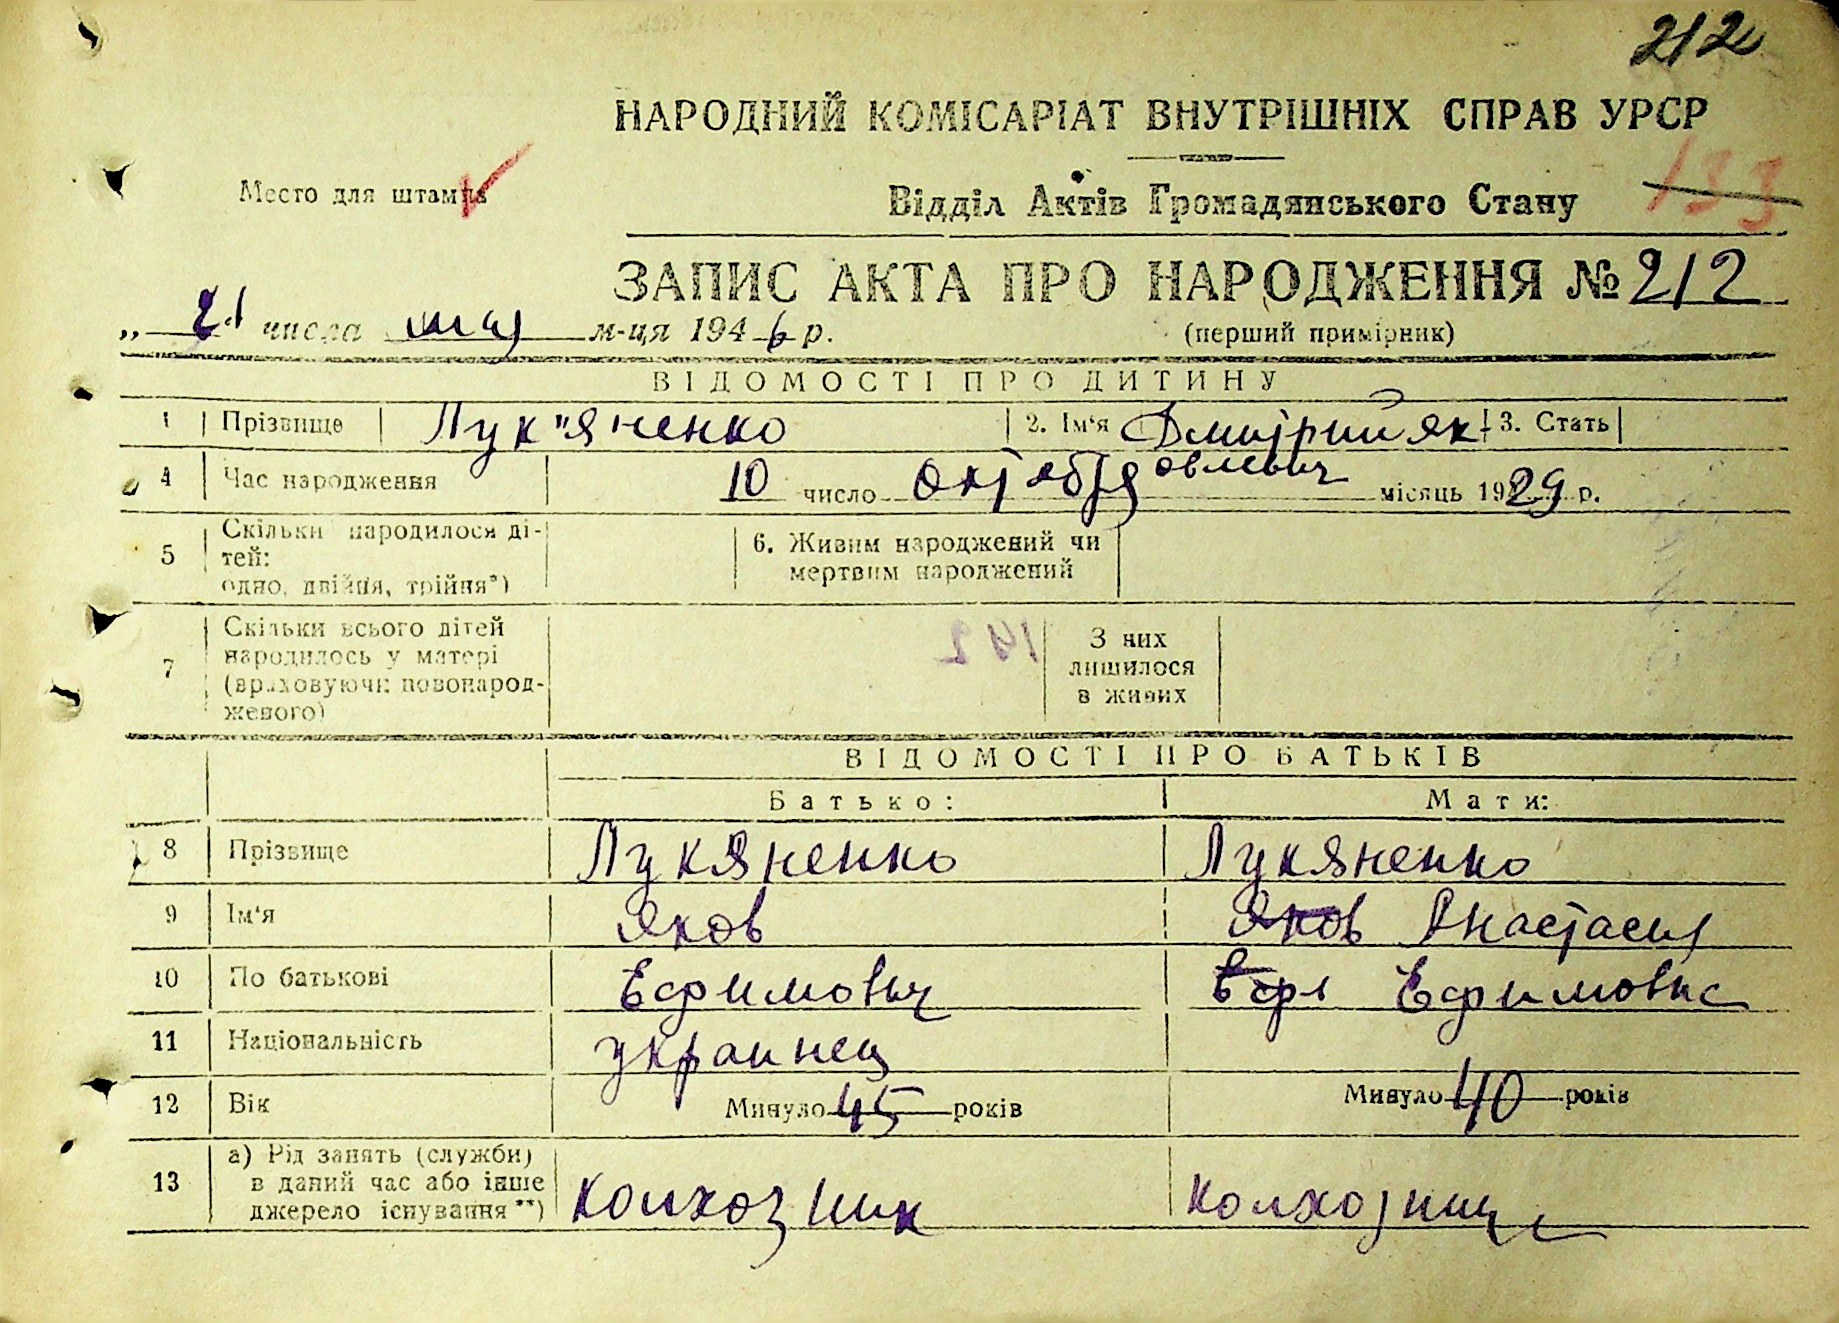 212
НАРОДНИЙ КОМІСАРІАТ ВНУТРІШНІХ СПРАВ УРСР
Место для штампа
Відділ Актів Громадянського Стану 133
ЗАПИС АКТА ПРО НАРОДЖЕННЯ № 212
„ 21 числа мая м-ця 1946 р.
(перший примірник)
ВІДОМОСТІ ПРО ДИТИНУ
1 Прізвище Лук"яненко 2. Ім'я Дмитрий Як 3. Стать
овлевич
4 Час народження 10 число октября місяць 1929 р.
5 Скільки народилося ді-
тей:
одно, двійня, трійня*)
6. Живим народжений чи
мертвим народжений
7 Скільки всього дітей
народилось у матері
(враховуючи новонарод-
женого)
З них
лишилося
в живих
ВІДОМОСТІ ПРО БАТЬКІВ
Батько: Мати:
8 Прізвище Лукяненко Лукяненко
9 Ім'я Яков Яков Анастасия
10 По батькові Ефимович Ефи Ефимовна
11 Національність украинец
12 Вік Минуло 45 років Минуло 40 років
13 а) Рід занять (служби)
в даний час або інше
джерело існування**)
колхозник колхозница